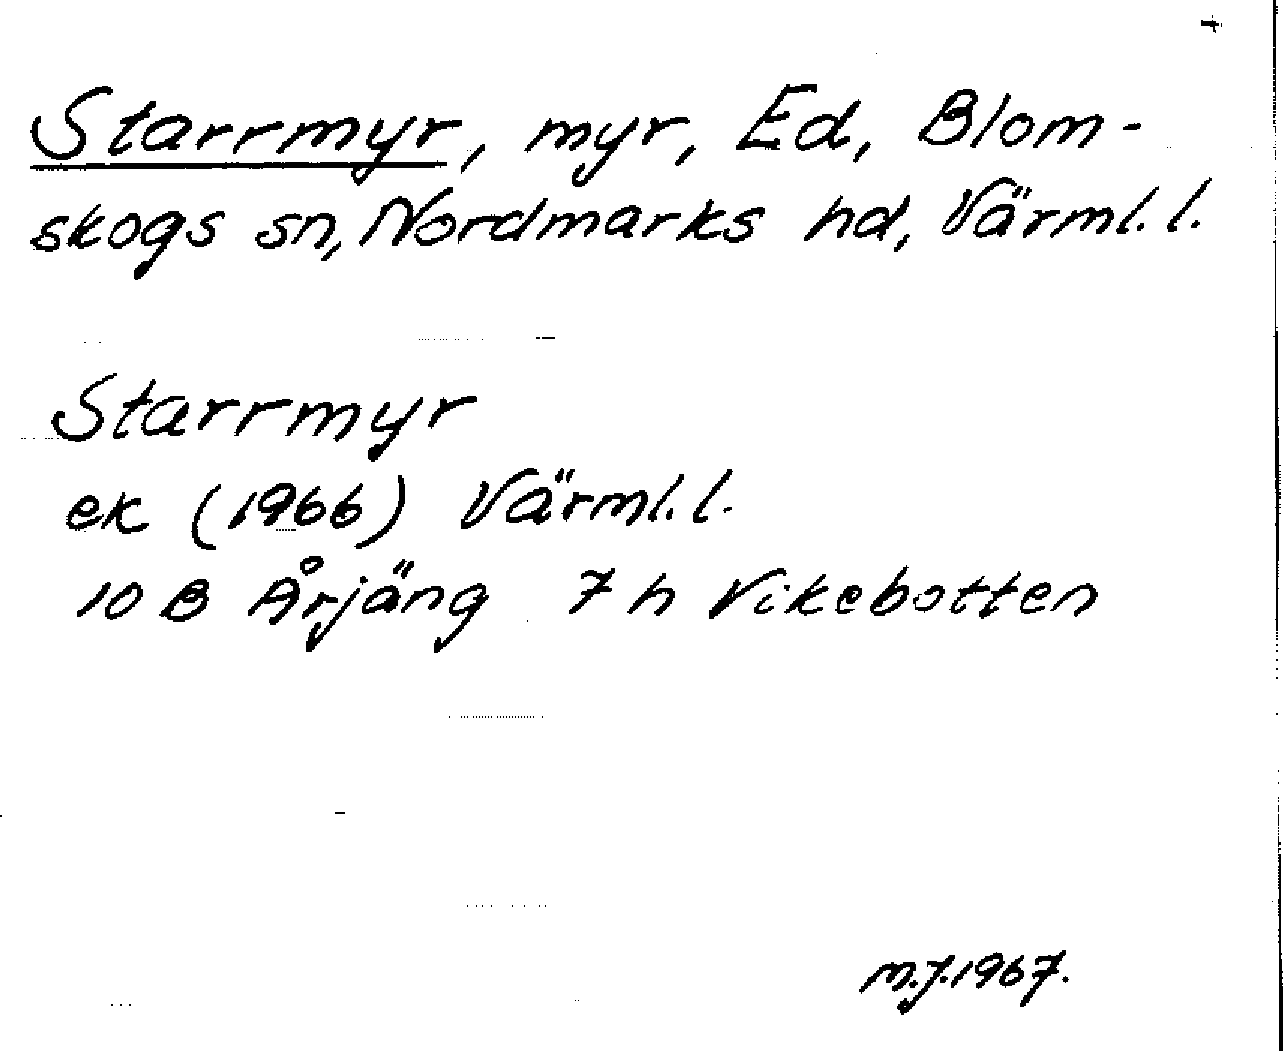 +
Starrmyr, myr, Ed, Blom-
skogs sn, Nordmarks hd, Värml. l.
Starrmyr
ek (1966) Värml. l.
10 B Årjäng 7 h Vikebotten
m.j. 1967.